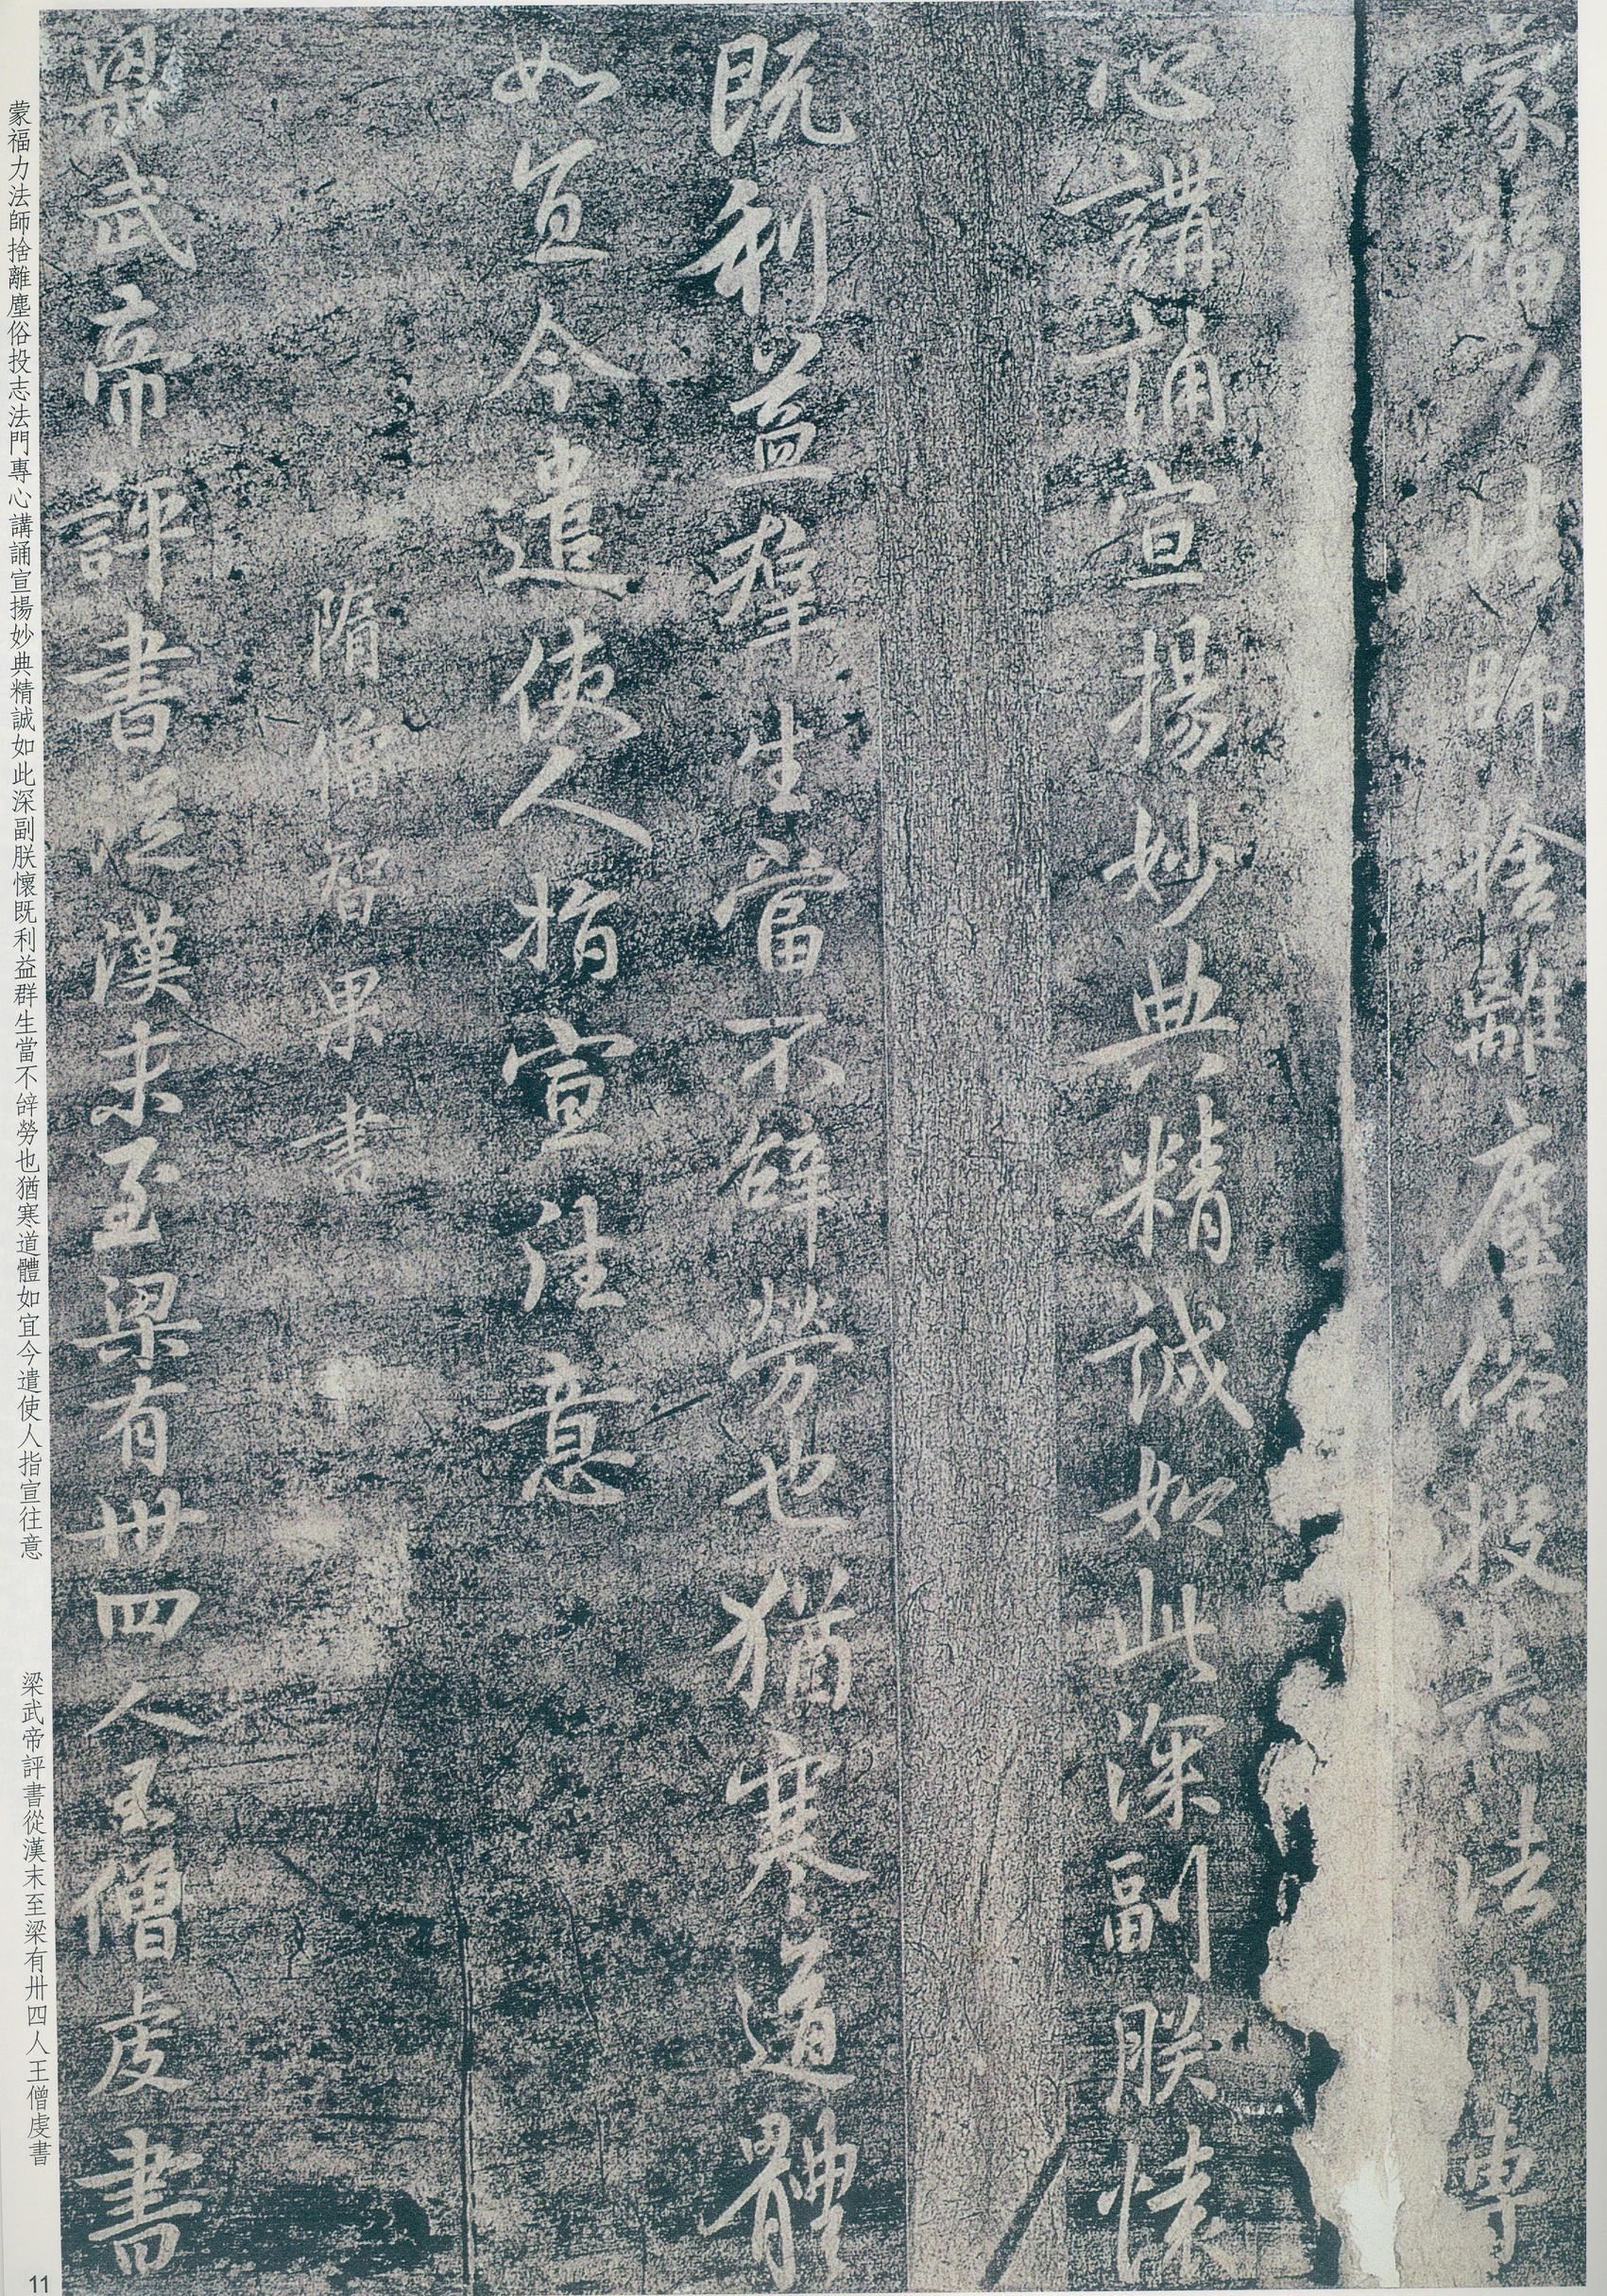 蒙福力法師捨離塵俗投志法門專
心講誦宣揚妙典精誠如此深副朕懷
既利益羣生當不辤勞也猶寒道體
如宜今遣使人指宣往意
隋僧智果書
梁武帝評書從漢末至梁有卅四人王僧虔書
蒙福力法師捨離塵俗投志法門專心講誦宣揚妙典精誠如此深副朕懷既利益群生當不辤勞也猶寒道體如宜今遣使人指宣往意
梁武帝評書從漢末至梁有卅四人王僧虔書
11